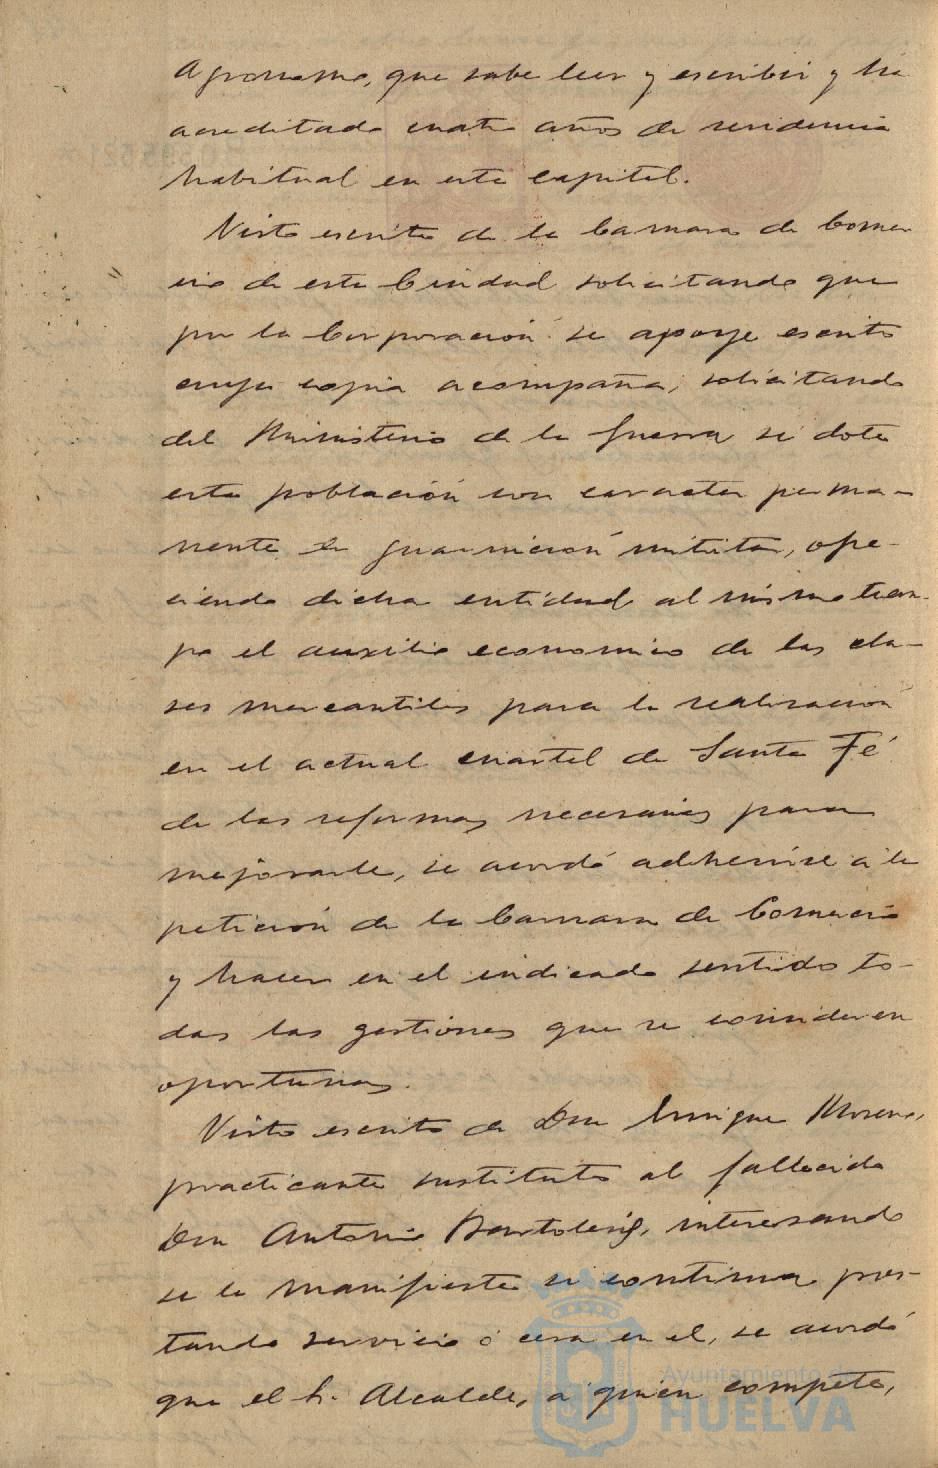 Agronomo, que sabe leer y escribir y ha
acreditado cuatro años de residencia
habitual en esta capital.
Visto escrito de la Camara de Comer
cio de esta Ciudad solicitando que
por la Corporación se apoye escrito
cuya copia acompaña, solicitando
del Ministerio de la Guerra se dote
esta población con caracter perma-
nente de guarnición militar, ofre-
ciendo dicha entidad al mismo tiem-
po el auxilio economico de las cla-
ses mercantiles para la realización
en el actual cuartel de Santa Fé
de las reformas necesarias para
mejorarle, se acordó adherirse á la
petición de la Camara de Comercio
y hacer en el indicado sentido to-
das las gestiones que se consideren
oportunas.
Visto escrito de Don Enrique Moreno,
practicante sustituto al fallecido
Don Antonio Bartolesig, interesando
se le manifieste si continua pres-
tando servicio ó cesa en el, se acordó
que el Sr. Alcalde, a quien compete,
Ayuntamiento de
HUELVA